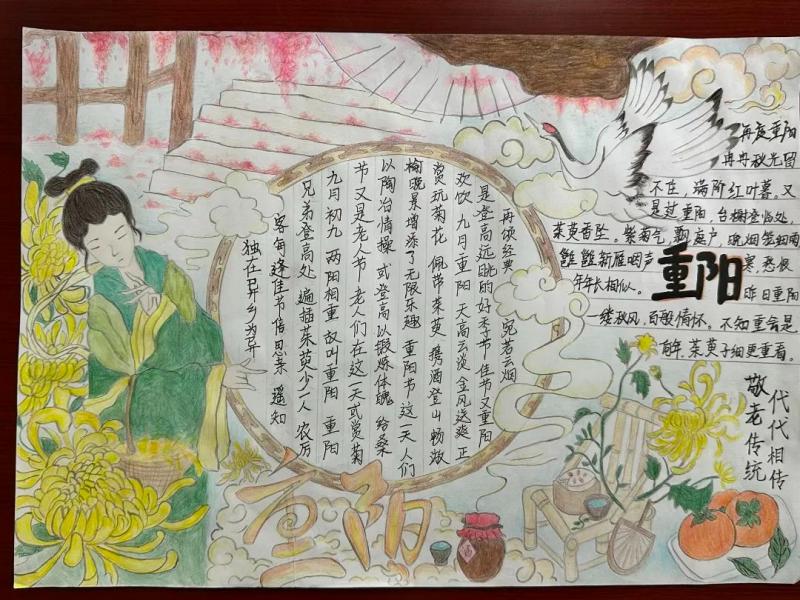 独在异乡为异
客每逢佳节倍思亲 遥知
兄弟登高处 遍插茱萸少一人 农厉
九月初九 两阳相重 故叫重阳 重阳
节又是老人节 老人们在这一天或赏菊
以陶冶情操 或登高以锻炼体魄 给桑
榆晚景增添了无限乐趣 重阳节这一天 人们
赏玩菊花 佩带茱萸 携酒登山 畅游
欢饮 九月重阳 天高云淡 金风送爽 正
是登高远眺的好季节 佳节又重阳
再颂经典 宛若云烟
重阳
酒
再度重阳
冉冉秋光留
不住,满阶红叶暮。又
是过重阳,台榭登临处,
茱萸香坠。紫菊气,飘庭户,晚烟笼细雨
雝雝新雁咽声 寒,愁恨
年年长相似。 昨日重阳
重阳
一缕秋风,百般情怀。不知重会是
何年,茱萸子细更重看。
敬老传统
代代相传